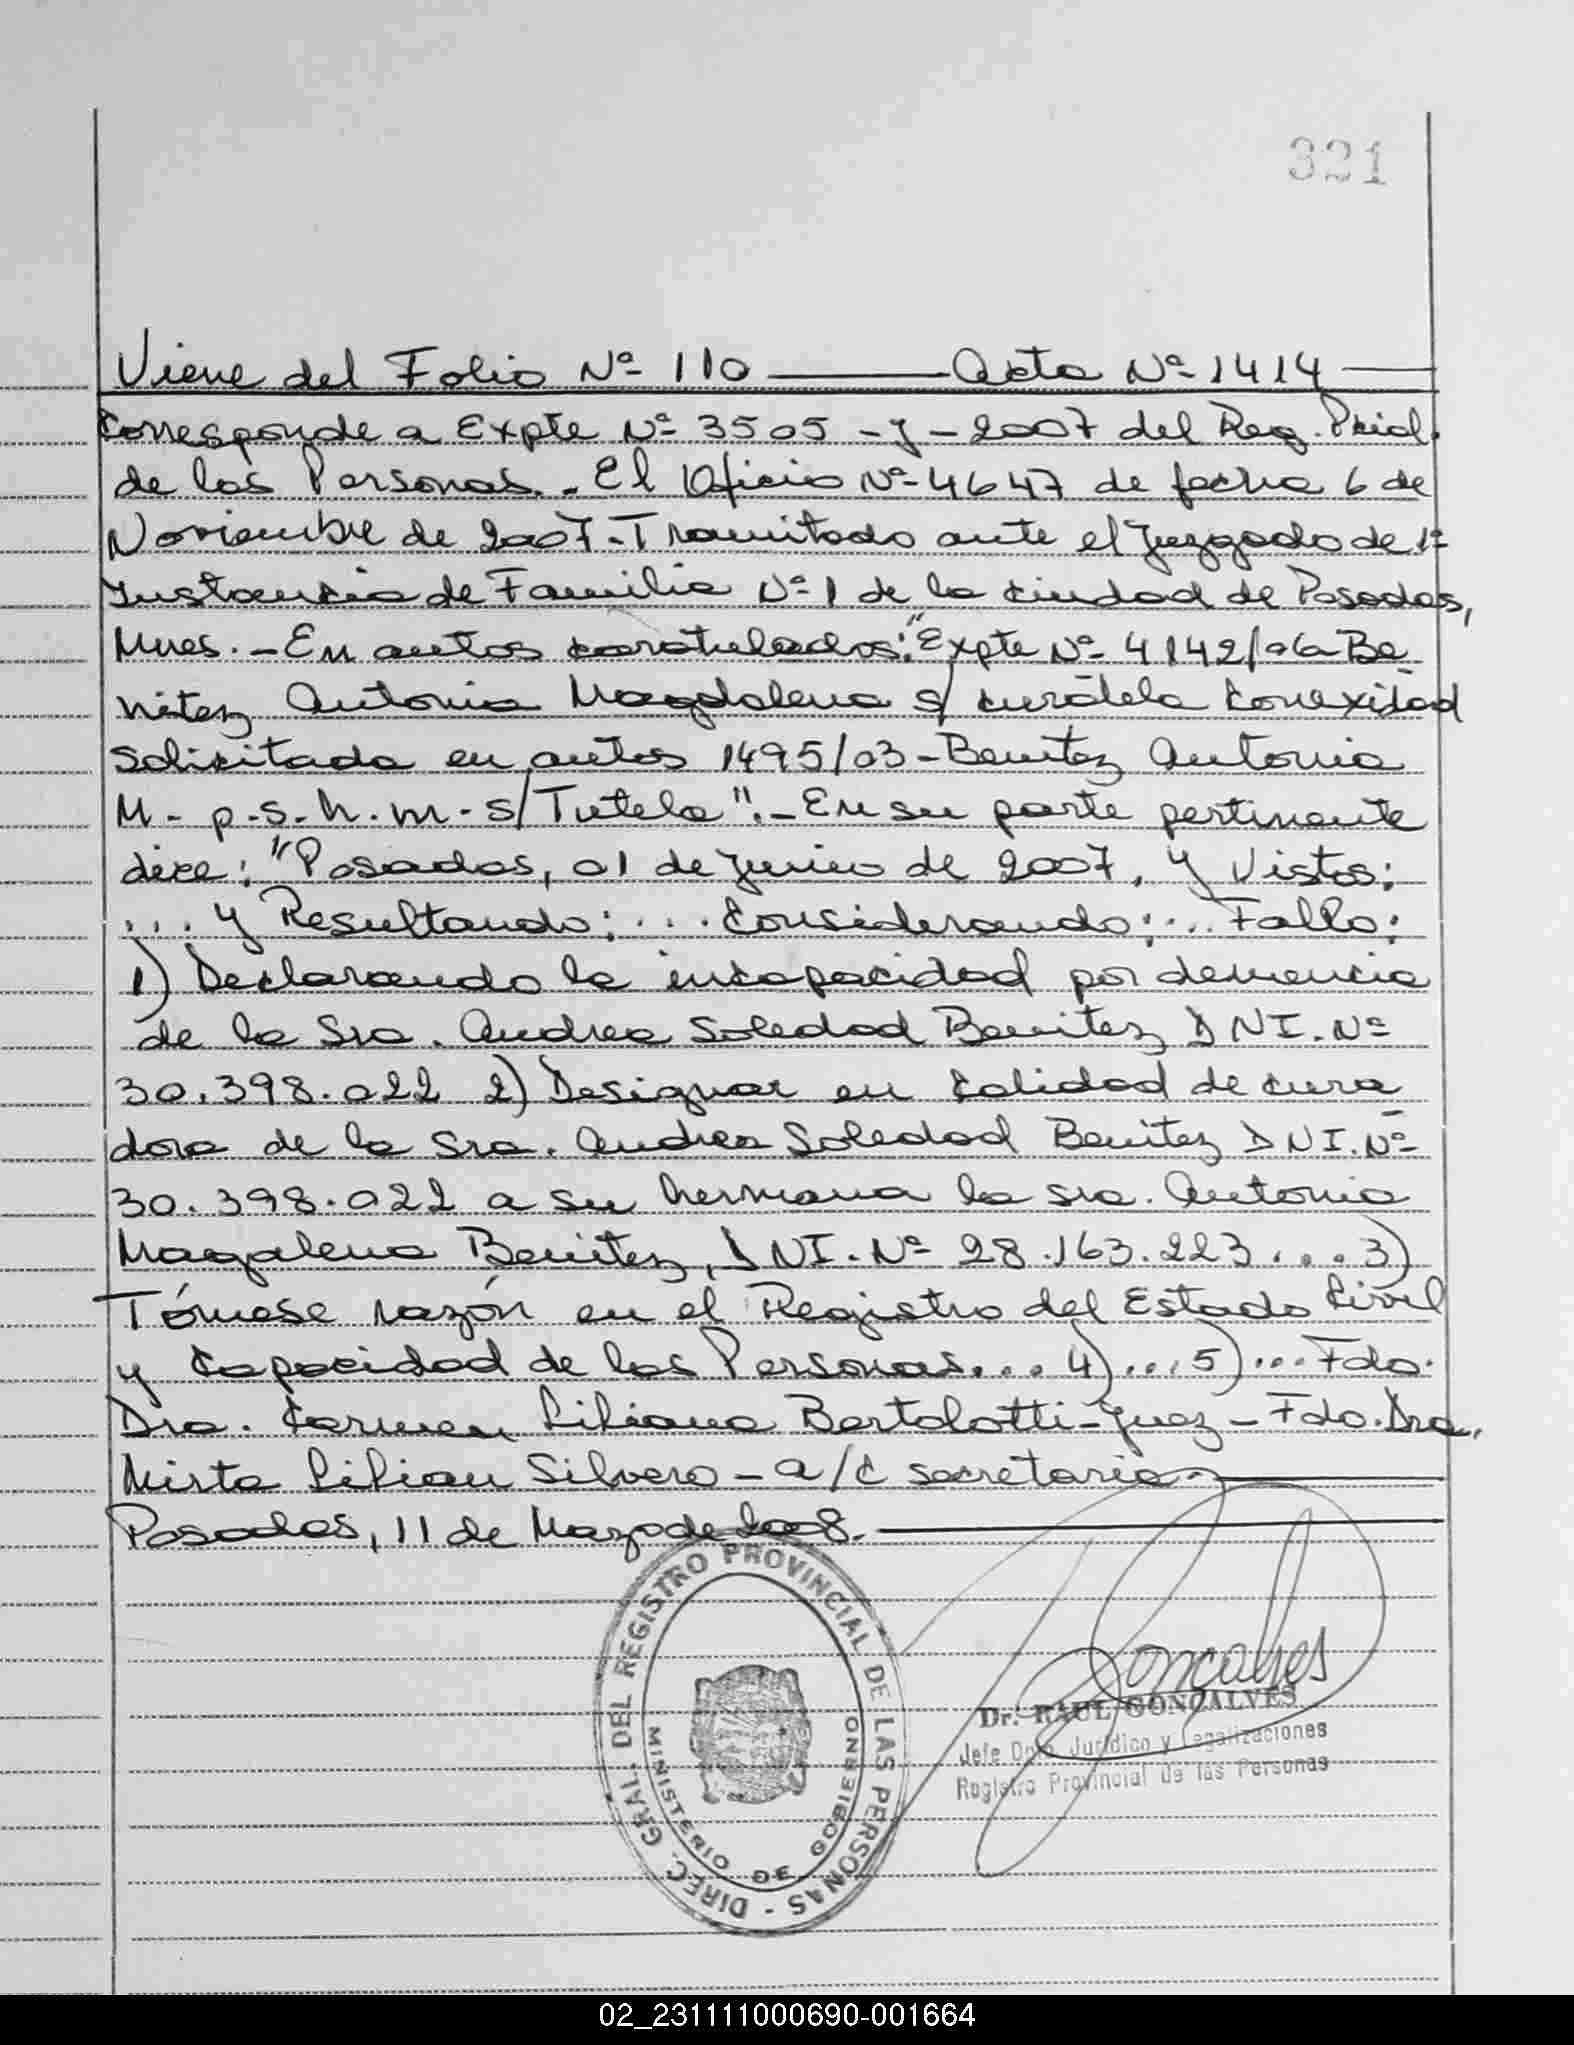 321
Viene del Folio Nº 110 — Acta Nº 1414 —
Corresponde a Expte Nº 3505 - y - 2007 del Reg. Pcial.
de las Personas. - El Oficio Nº 4647 de fecha 6 de
Noviembre de 2007 - Tramitado ante el Juzgado de 1ª
Instancia de Familia Nº 1 de la ciudad de Posadas,
Mnes. - En autos caratulados: "Expte Nº 4142/06 Be
nitez Antonia Magdalena s/ curatela conexidad
solicitada en autos 1495/03 - Benitez Antonia
M - p.s.h.m. s/Tutela". - En su parte pertinente
dice: "Posadas, 01 de Junio de 2007. Y Vistos:
... y Resultando: ... Considerando: ... Fallo:
1) Declarando la incapacidad por demencia
de la Sra. Andrea Soledad Benitez DNI. Nº
30.398.022 2) Designar en calidad de cura
dora de la Sra. Andrea Soledad Benitez DNI. Nº
30.398.022 a su hermana la sra. Antonia
Magalena Benitez, DNI. Nº 28.163.223 ... 3)
Tómese razón en el Registro del Estado Civil
y Capacidad de las Personas... 4) ... 5) ... Fdo.
Dra. Carmen Liliana Bertolotti - Juez - Fdo. Dra.
Mirta Lilian Silvero - a/c secretaria -
Posadas, 11 de Mayo de 2008. -
DIREC. GRAL. DEL REGISTRO PROVINCIAL DE LAS PERSONAS -
MINISTERIO DE GOBIERNO
Goncalves
Dr. RAUL GONCALVES
Jefe Dpto. Jurídico y Legalizaciones
Registro Provincial de las Personas
02_231111000690-001664